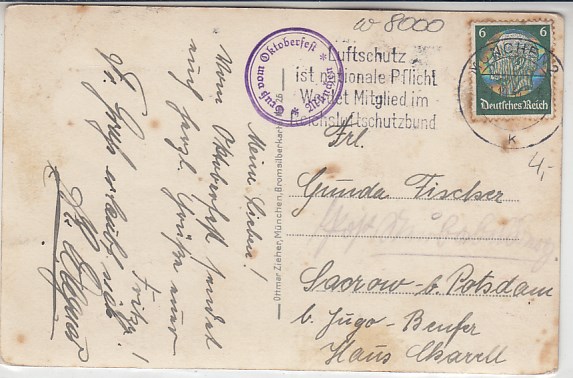 Meine Lieben!
Vom Oktoberfest sendet
euch herzl. Grüße euer
Fritz!
Gruß erlaubt sich
Gruß vom Oktoberfest
* München *
w 8000
Luftschutz
ist nationale Pflicht
Werdet Mitglied im
Reichsluftschutzbund
MÜNCHEN 2
K
6 6
Deutsches Reich
4,-
Ottmar Zieher, München, Bromsilberkarte
Frl.
Gunda Fischer
Sacrow b. Potsdam
b. Jugo-Benfer
Haus